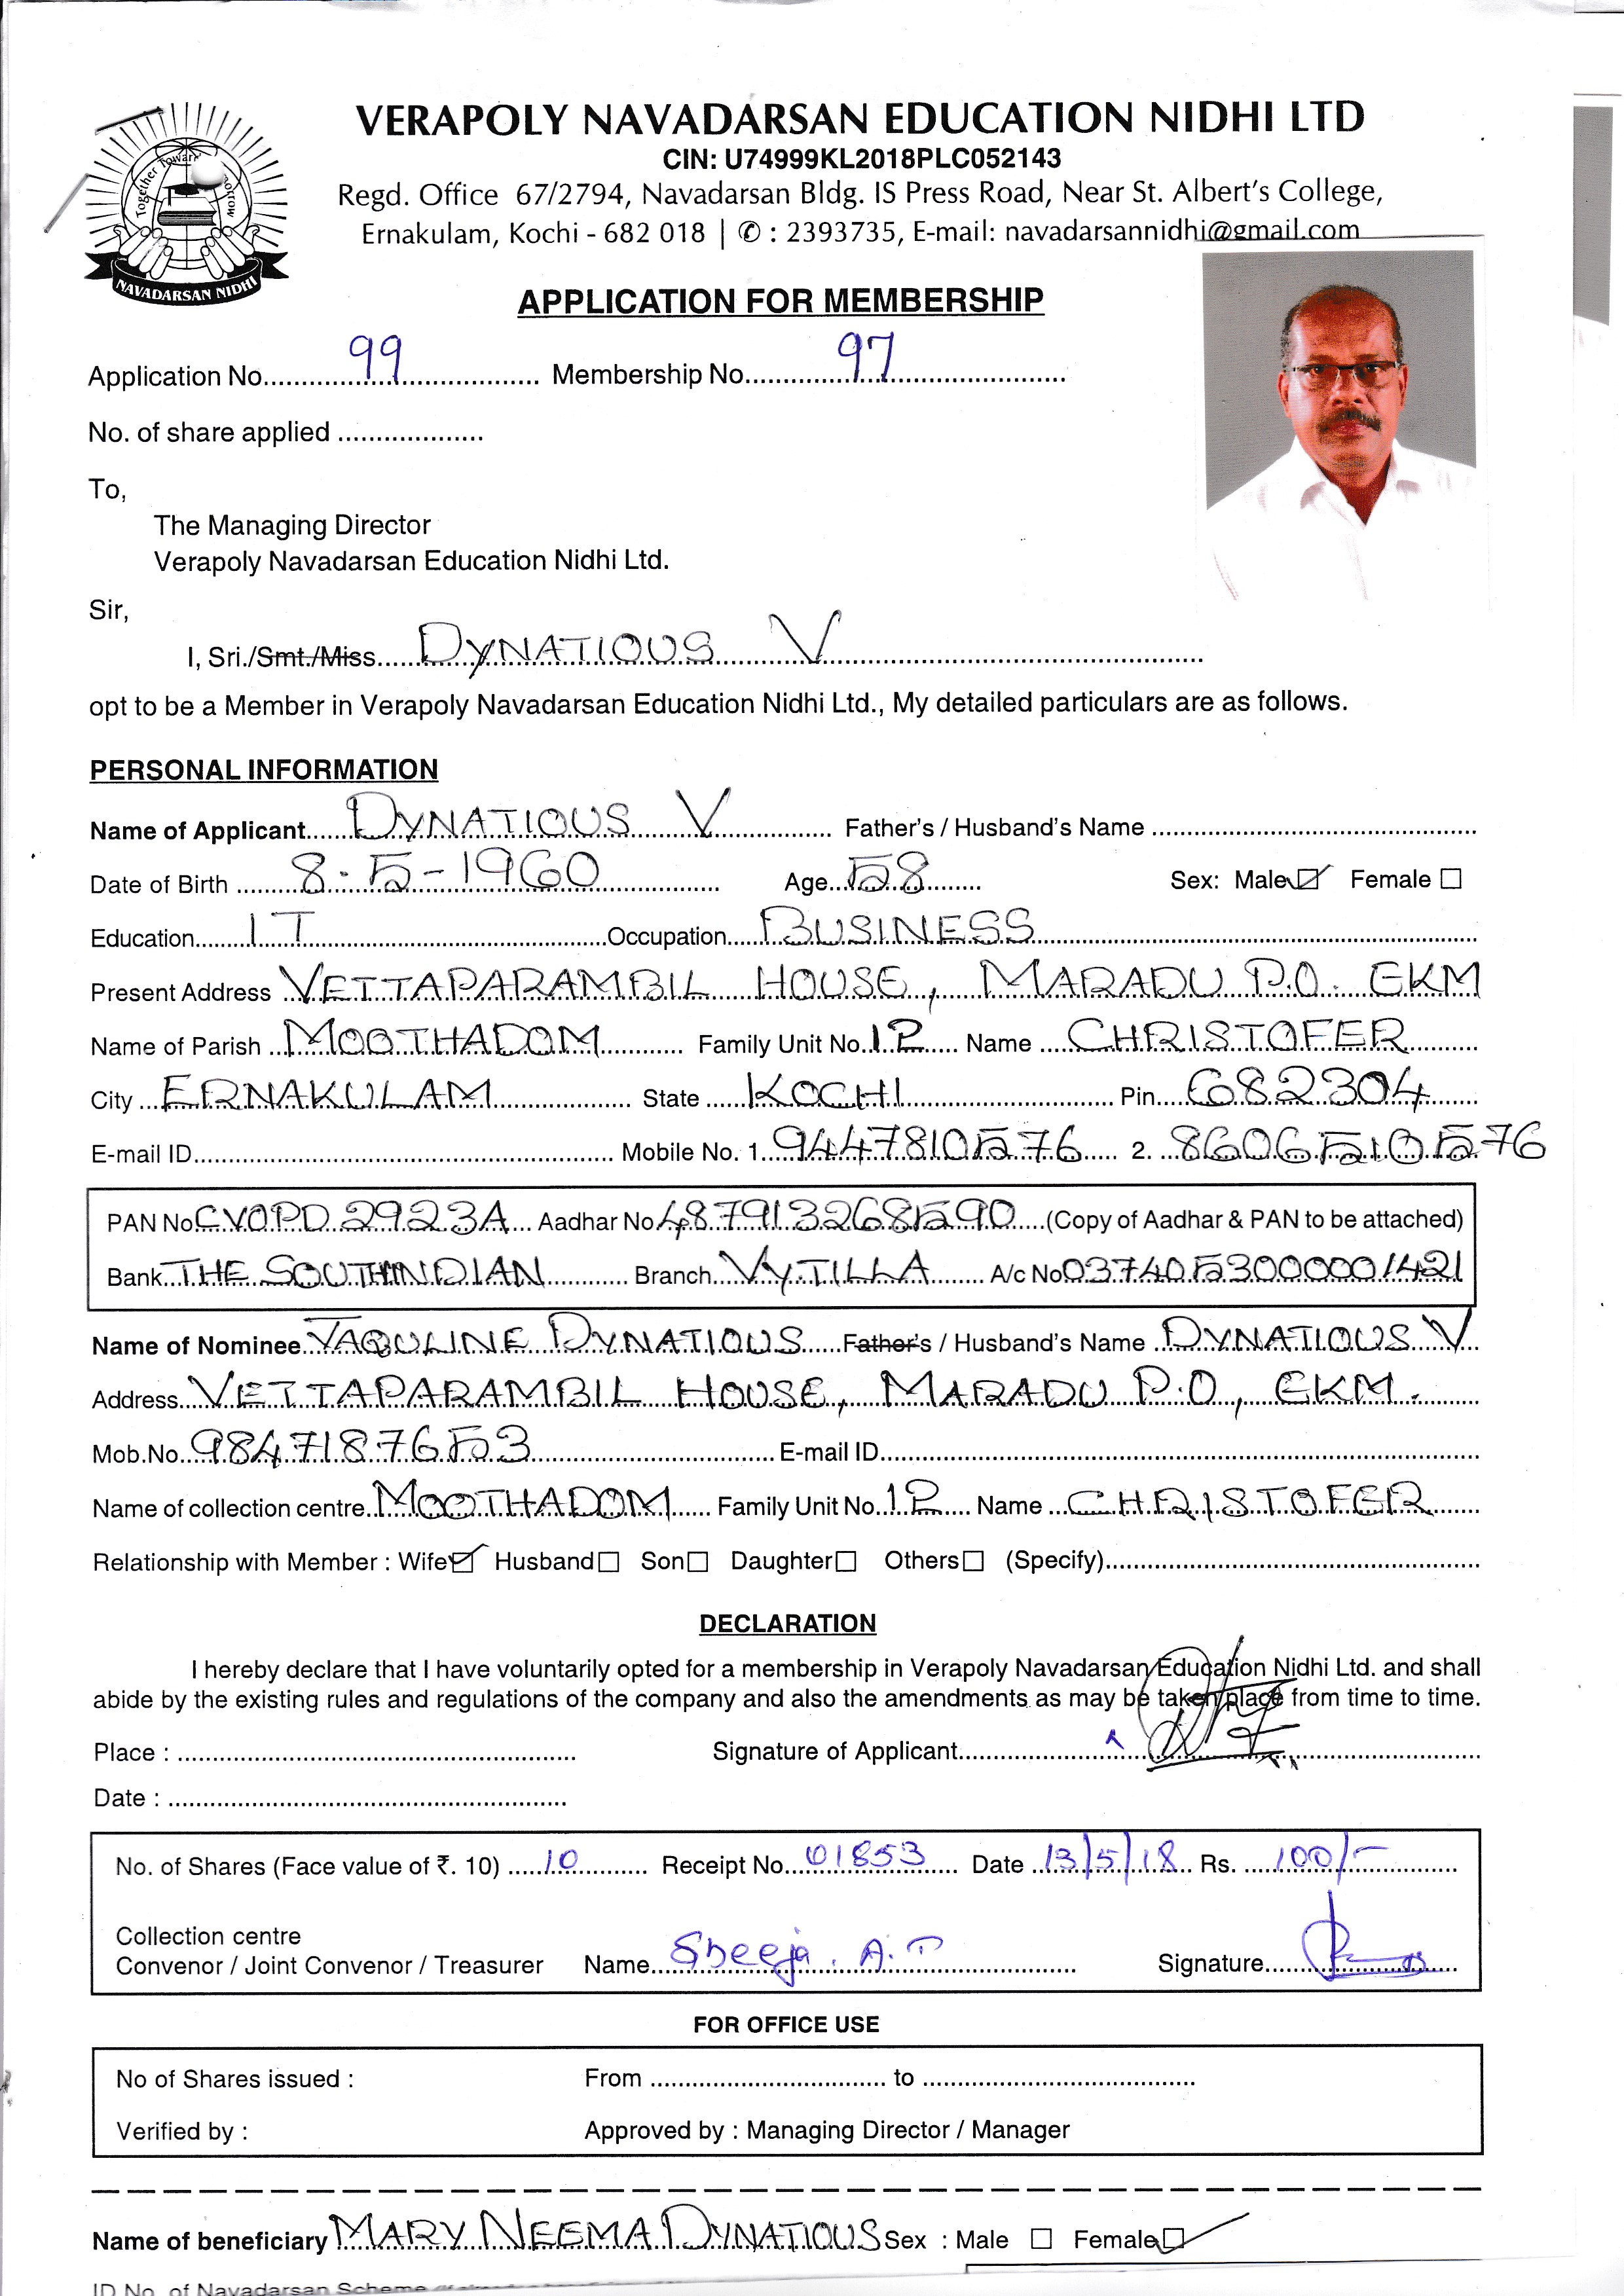 VERAPOLY NAVADARSAN EDUCATION NIDHI LTD
CIN: U74999KL2018PLC052143
Regd. Office 67/2794, Navadarsan Bldg. IS Press Road, Near St. Albert's College,
Ernakulam, Kochi - 682 018 | ✆ : 2393735, E-mail: navadarsannidhi@gmail.com
Together Towar
NAVADARSAN NIDHI
APPLICATION FOR MEMBERSHIP
Application No. 99 Membership No. 97
No. of share applied
To,
The Managing Director
Verapoly Navadarsan Education Nidhi Ltd.
Sir,
I, Sri./Smt./Miss. DYNATIOUS V
opt to be a Member in Verapoly Navadarsan Education Nidhi Ltd., My detailed particulars are as follows.
PERSONAL INFORMATION
Name of Applicant DYNATIOUS V Father's / Husband's Name
Date of Birth 8-5-1960 Age 58 Sex: Male ☑ Female ☐
Education IT Occupation BUSINESS
Present Address VETTAPARAMBIL HOUSE, MARADU P.O. EKM
Name of Parish MOOTHADOM Family Unit No. 12 Name CHRISTOFER
City ERNAKULAM State KOCHI Pin 682304
E-mail ID Mobile No. 1. 9447810576 2. 8606510576
PAN No CVOPD 2923A Aadhar No 487913268590 (Copy of Aadhar & PAN to be attached)
Bank THE SOUTHINDIAN Branch VYTILLA A/c No 0374053000001421
Name of Nominee JAQULINE DYNATIOUS Father's / Husband's Name DYNATIOUS V
Address VETTAPARAMBIL HOUSE, MARADU P.O, EKM.
Mob.No. 9847187653 E-mail ID
Name of collection centre MOOTHADOM Family Unit No. 12 Name CHRISTOFER
Relationship with Member : Wife ☑ Husband ☐ Son ☐ Daughter ☐ Others ☐ (Specify)
DECLARATION
I hereby declare that I have voluntarily opted for a membership in Verapoly Navadarsan Education Nidhi Ltd. and shall
abide by the existing rules and regulations of the company and also the amendments as may be taken place from time to time.
Place : Signature of Applicant
Date :
No. of Shares (Face value of ₹. 10) 10 Receipt No. 01853 Date 13/5/18 Rs. 100/-
Collection centre
Convenor / Joint Convenor / Treasurer Name Sheeja. A.T Signature
FOR OFFICE USE
No of Shares issued : From to
Verified by : Approved by : Managing Director / Manager
Name of beneficiary MARY NEEMA DYNATIOUS Sex : Male ☐ Female ☑
ID No. of Navadarsan Scheme